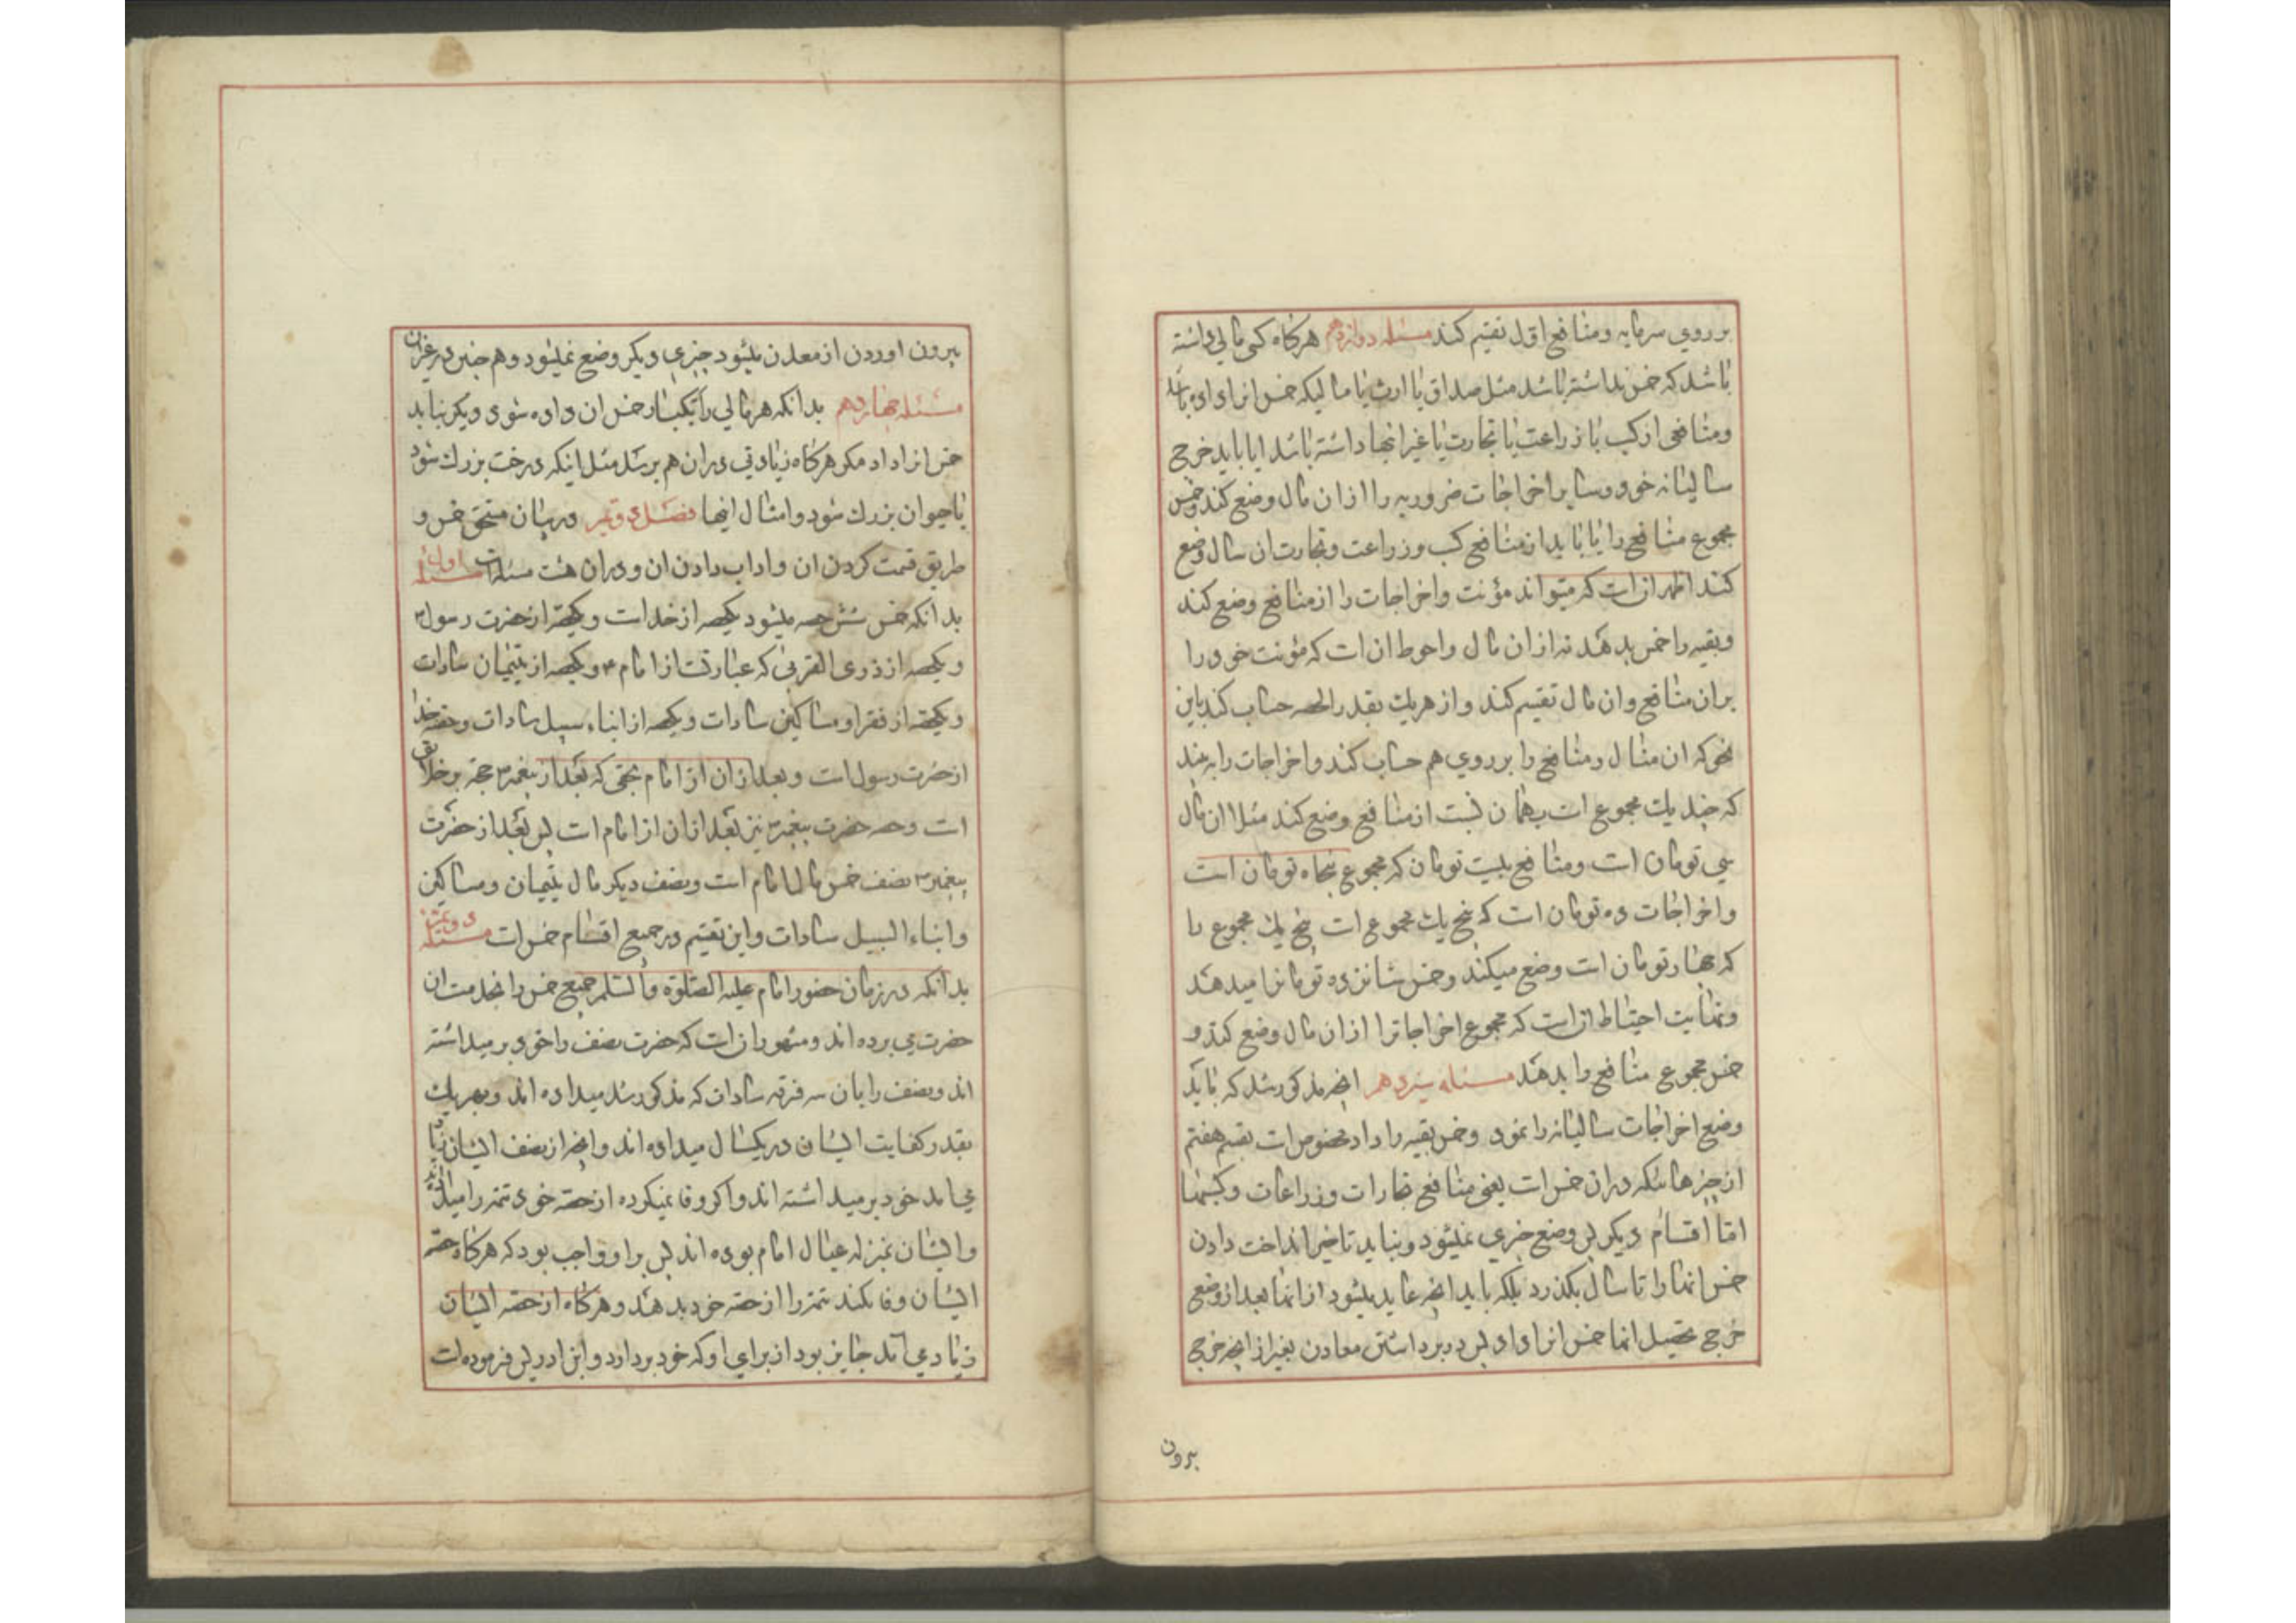 بر روی سرمایه و منافع اول تقسیم کند مسئله دوازدهم هرکاه کسی مالی داشته
باشد که خمس نداشته باشد مثل صداق یا ارث یا مالیکه خمس انرا داده باشد
و منافعی از کسب یا زراعت یا تجارت یا غیر اینها داشته باشد ایا باید خرج
سالیانه خود و سایر اخراجات ضروریه را از ان مال وضع کند و خمس
مجموع منافع را یا باید از منافع کسب و زراعت و تجارت ان سال وضع
کند اظهر ان است که میتواند مؤنت و اخراجات را از منافع وضع کند
و بقیه را خمس بدهد نه از ان مال و احوط ان است که مؤنت خود را
بر ان منافع و ان مال تقسیم کند و از هریک بقدر الحصه حساب کند باین
نحو که ان مال و منافع را بر روی هم حساب کند و اخراجات را به بیند
که چند یک مجموع است بهمان نسبت از منافع وضع کند مثلا ان مال
سی تومان است و منافع بیست تومان که مجموع پنجاه تومان است
و اخراجات ده تومان است که پنج یک مجموع است پنج یک مجموع را
که چهار تومان است وضع میکند و خمس شانزده تومانرا میدهد
و نهایت احتیاط ان است که مجموع اخراجاترا از ان مال وضع کند و
خمس مجموع منافع را بدهد مسئله سیزدهم انچه مذکور شد که باید
وضع اخراجات سالیانه را نمود و خمس بقیه را داد مخصوص است بقسم هفتم
از چیزهائیکه در ان خمس است یعنی منافع تجارات و زراعات و کسبها
اما اقسام دیکر پس وضع خرجی نمیشود و نباید تاخیر انداخت دادن
خمس انها را تا سال بکذرد بلکه باید انچه عاید میشود از انها بعد از وضع
خرج تحصیل انها خمس انرا داد پس در برداشتن معادن بغیر از انچه خرج
بیرون
بیرون اوردن از معدن میشود چیزی دیکر وضع نمیشود و هم چنین در غیر ان
مسئله چهاردهم بدانکه هر مالی را یکبار خمس ان داده شود دیکر نباید
خمس انرا داد مکر هرکاه زیادتی در ان هم برسد مثل اینکه درخت بزرك شود
یا حیوان بزرك شود و امثال اینها فصل دوم در بیان مستحق خمس و
طریق قسمت کردن ان و اداب دادن ان و در ان هشت مسئله است مسئله اول
بدانکه خمس شش حصه میشود یکحصه از خداست و یکحصه از حضرت رسول ص
و یکحصه از ذوی القربی که عبارتست از امام ع و یکحصه از یتیمان سادات
و یکحصه از فقرا و مساکین سادات و یکحصه از ابناء سبیل سادات و حصه خدا
از حضرت رسول است و بعد از ان از امام بحقی که بعد از پیغمبر ص حجة بر خلایق
است و حصه حضرت پیغمبر ص نیز بعد از ان از امام است پس بعد از حضرت
پیغمبر ص نصف خمس مال امام است و نصف دیکر مال یتیمان و مساکین
و ابناء السبیل سادات و این تقسیم در جمیع اقسام خمس است مسئله دویم
بدانکه در زمان حضور امام علیه الصلوة والسلام جمیع خمس را بخدمت ان
حضرت می برده اند و مشهور ان است که حضرت نصف را خود بر میداشته
اند و نصف را بان سه فرقه سادات که مذکور شد میداده اند و بهریك
بقدر کفایت ایشان در یکسال میداده اند و انچه از نصف ایشان زیاد
می امد خود بر میداشته اند و اکر وفا نمیکرده از حصه خود تتمه را میداده اند
و ایشان بمنزله عیال امام بوده اند پس بر او واجب بود که هرکاه حصه
ایشان وفا نکند تتمه را از حصه خود بدهد و هرکاه از حصه ایشان
زیادی اید جایز بود از برای او که خود بردارد و ابن ادریس فرموده است